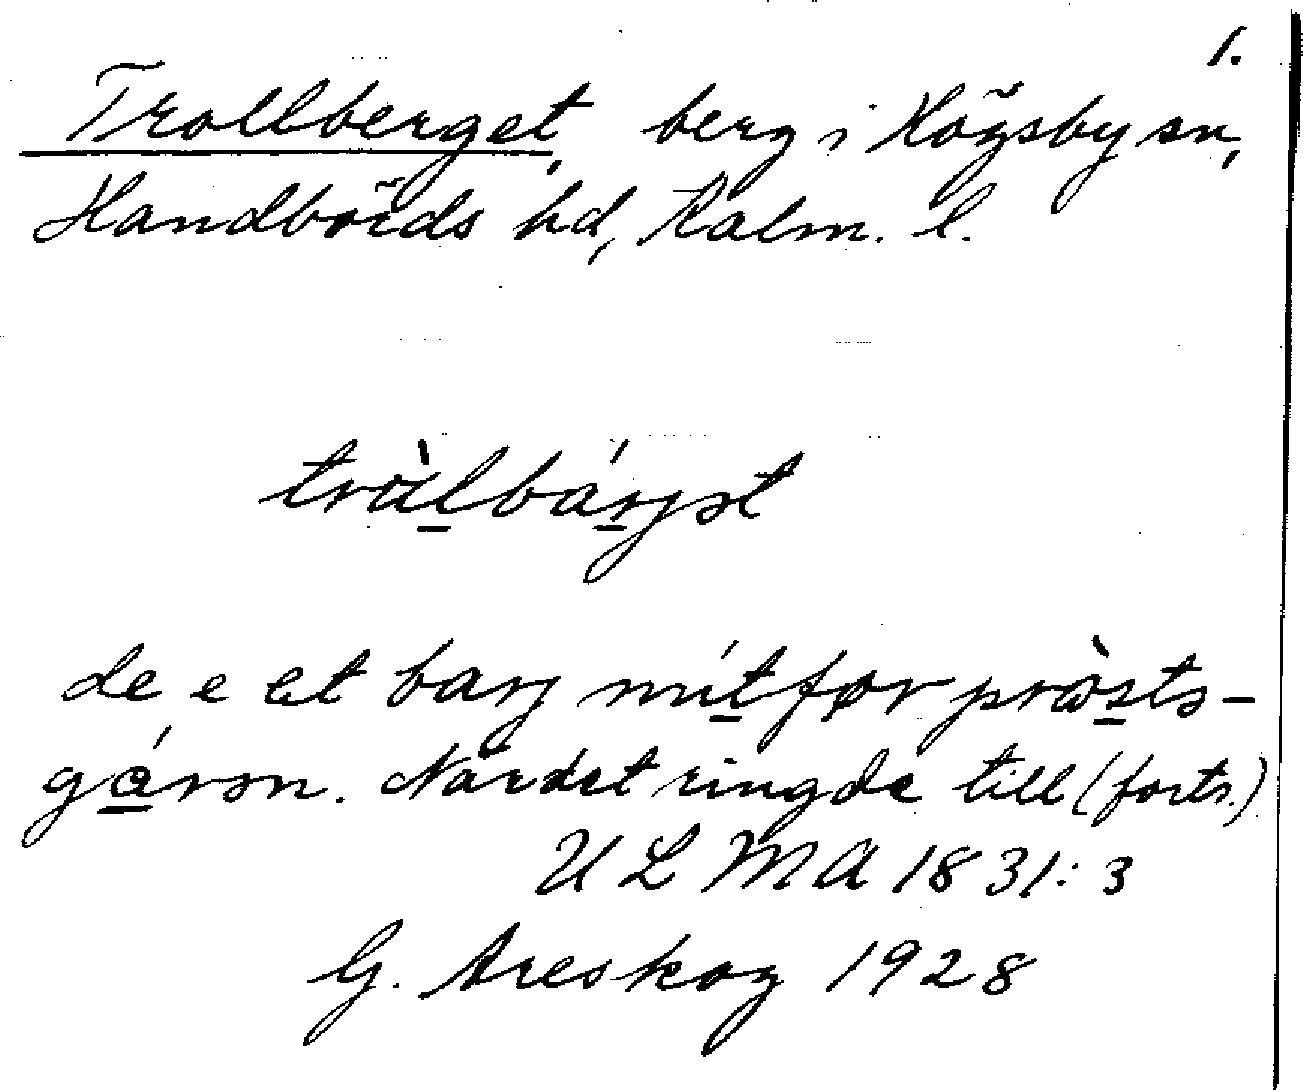 1.
Trollberget, berg i Högsby sn,
Handbörds hd, Kalm. l.
trɑ̀l̲bár̲jət
de e et barj mít̲før prɑ̀s̲ts-
gá̲rən. När det ringde till (forts.)
ULMA 1831:3
G. Areskog 1928